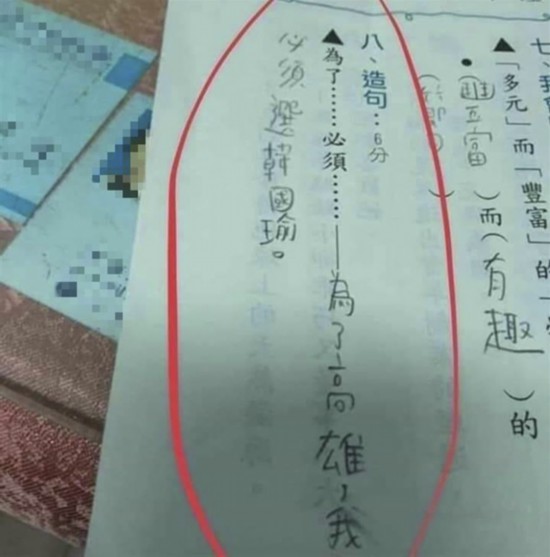 ▲「多元」而「豐富」的
富)而(有趣)的
八、造句:6分
▲為了……必須……——為了高雄,我
必須選韓國瑜。